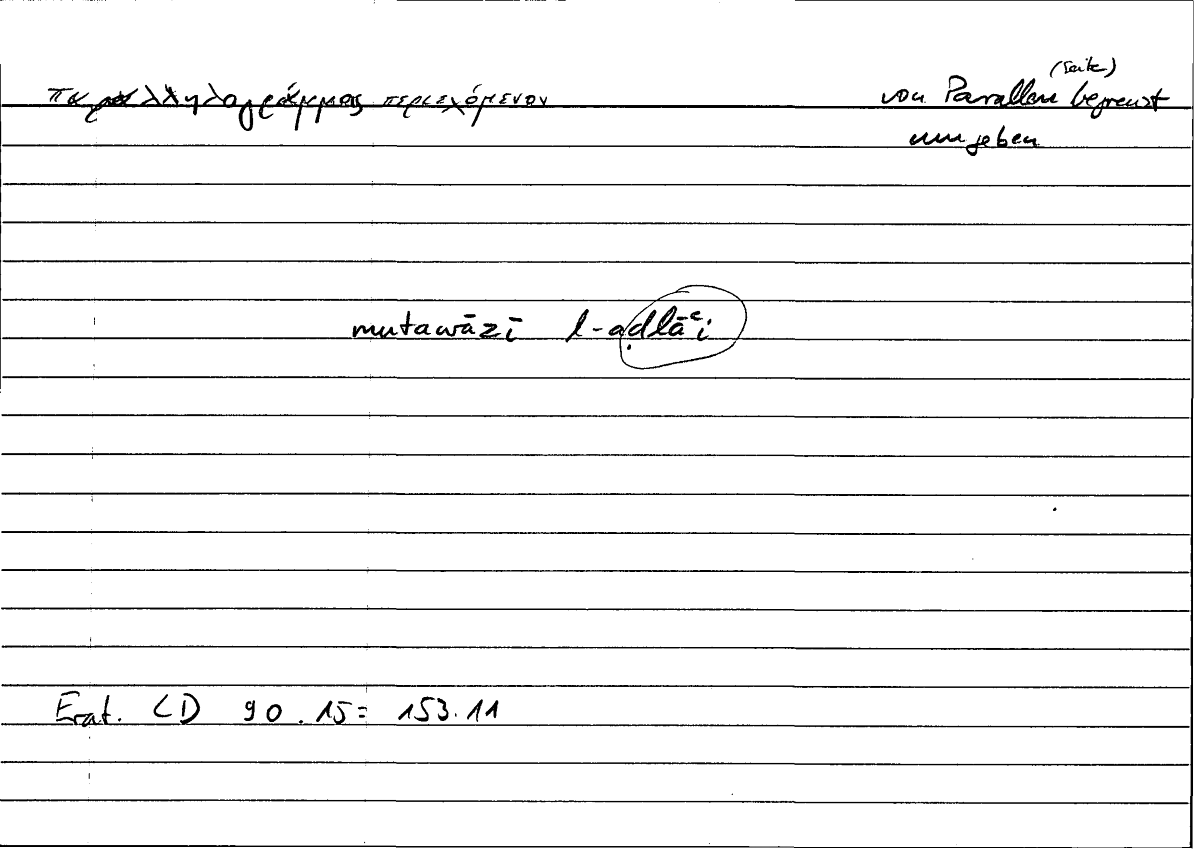 (Seite)
παραλληλογράμμος περιεχόμενον von Parallen begrenzt
umgeben
mutawāzī l-aḍlāʿi
Erat. CD 90.15 = 153.11